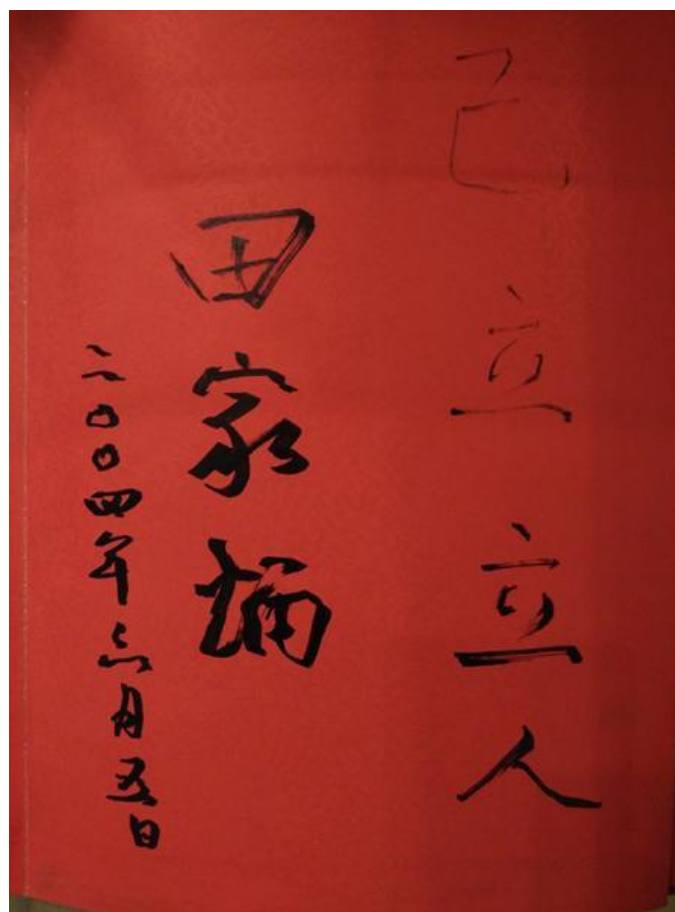 己立立人
田家炳
二〇〇四年六月五日